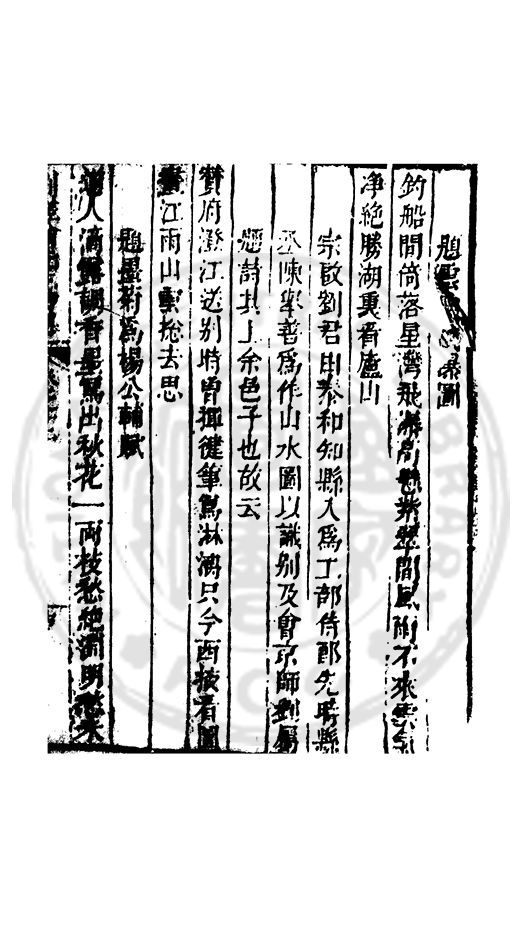 題雲
圖
釣船閒倚落星灣飛瀑
翠間風雨不來雲
净絶勝湖裏看廬山
宗啟劉君由泰和知縣入爲工部侍郎先時縣
丞陳學善爲作山水圖以識别及會京師劉屬
題詩其上余邑子也故云
贊府澄江送别時曽揮健筆寫淋漓只今西掖看圖
畫江雨山雲捴去思
題墨菊爲楊公輔賦
道人滴露調香墨寫出秋花一兩枝愁絶淵明